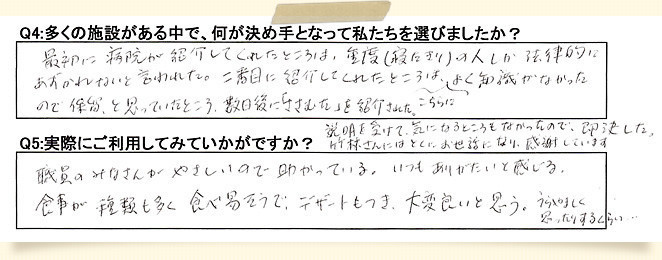 Q4:多くの施設がある中で、何が決め手となって私たちを選びましたか？
最初に病院が紹介してくれたところは、重度(寝たきり)の人しか法律的に
あずかれないと言われた。二番目に紹介してくれたところは、よく知識がなかった
ので保留、と思っていたところ、数日後に「」を紹介された。こちらに
Q5:実際にご利用してみていかがですか？
説明を受けて、気になるところもなかったので、即決した。
竹林さんにはとくにお世話になり、感謝しています
職員のみなさんがやさしいので助かっている。いつもありがたいと感じる。
食事が種類も多く食べ易そうで、デザートもつき、大変良いと思う。うらやましく
思ったりするくらい…